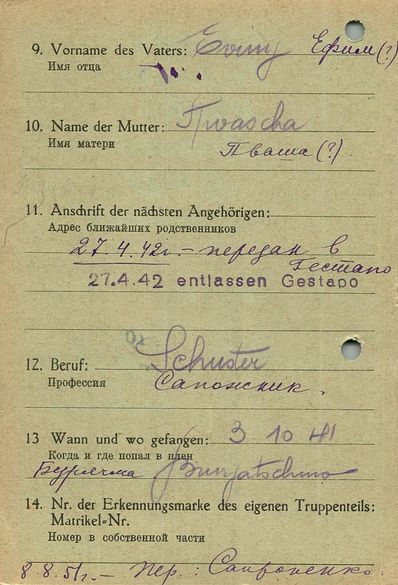 9. Vorname des Vaters: Evimy Ефим (?)
Имя отца
10. Name der Mutter: Pwascha
Имя матери
Пваша (?)
11. Anschrift der nächsten Angehörigen:
Адрес ближайших родственников
27.4.42г. - передан в
Гестапо
27.4.42 entlassen Gestapo
12. Beruf: Schuster
Профессия Сапожник.
13 Wann und wo gefangen: 3 10 41
Когда и где попал в плен
14. Nr. der Erkennungsmarke des eigenen Truppenteils:
Matrikel-Nr.
Номер в собственной части
8.8.51г. - пер.: Сапроненко